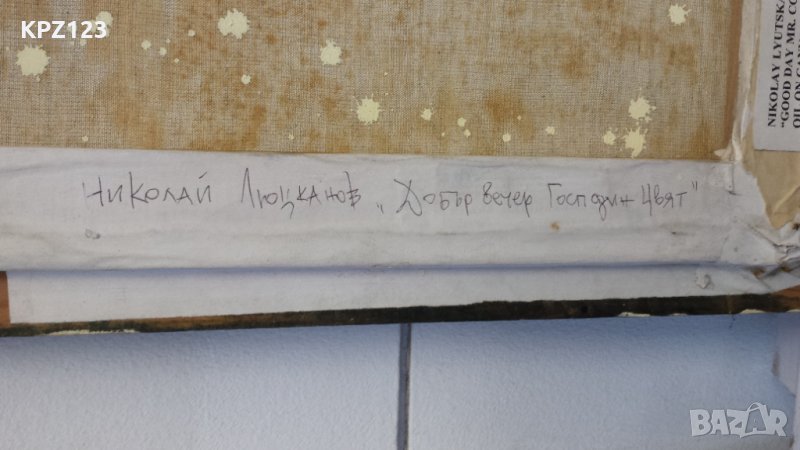 KPZ123
NIKOLAY LYUTSKA
"GOOD DAY MR. CO
OIL ON CAN
Николай Люцканов „Добър вечер Господин Цвят"
BAZAR